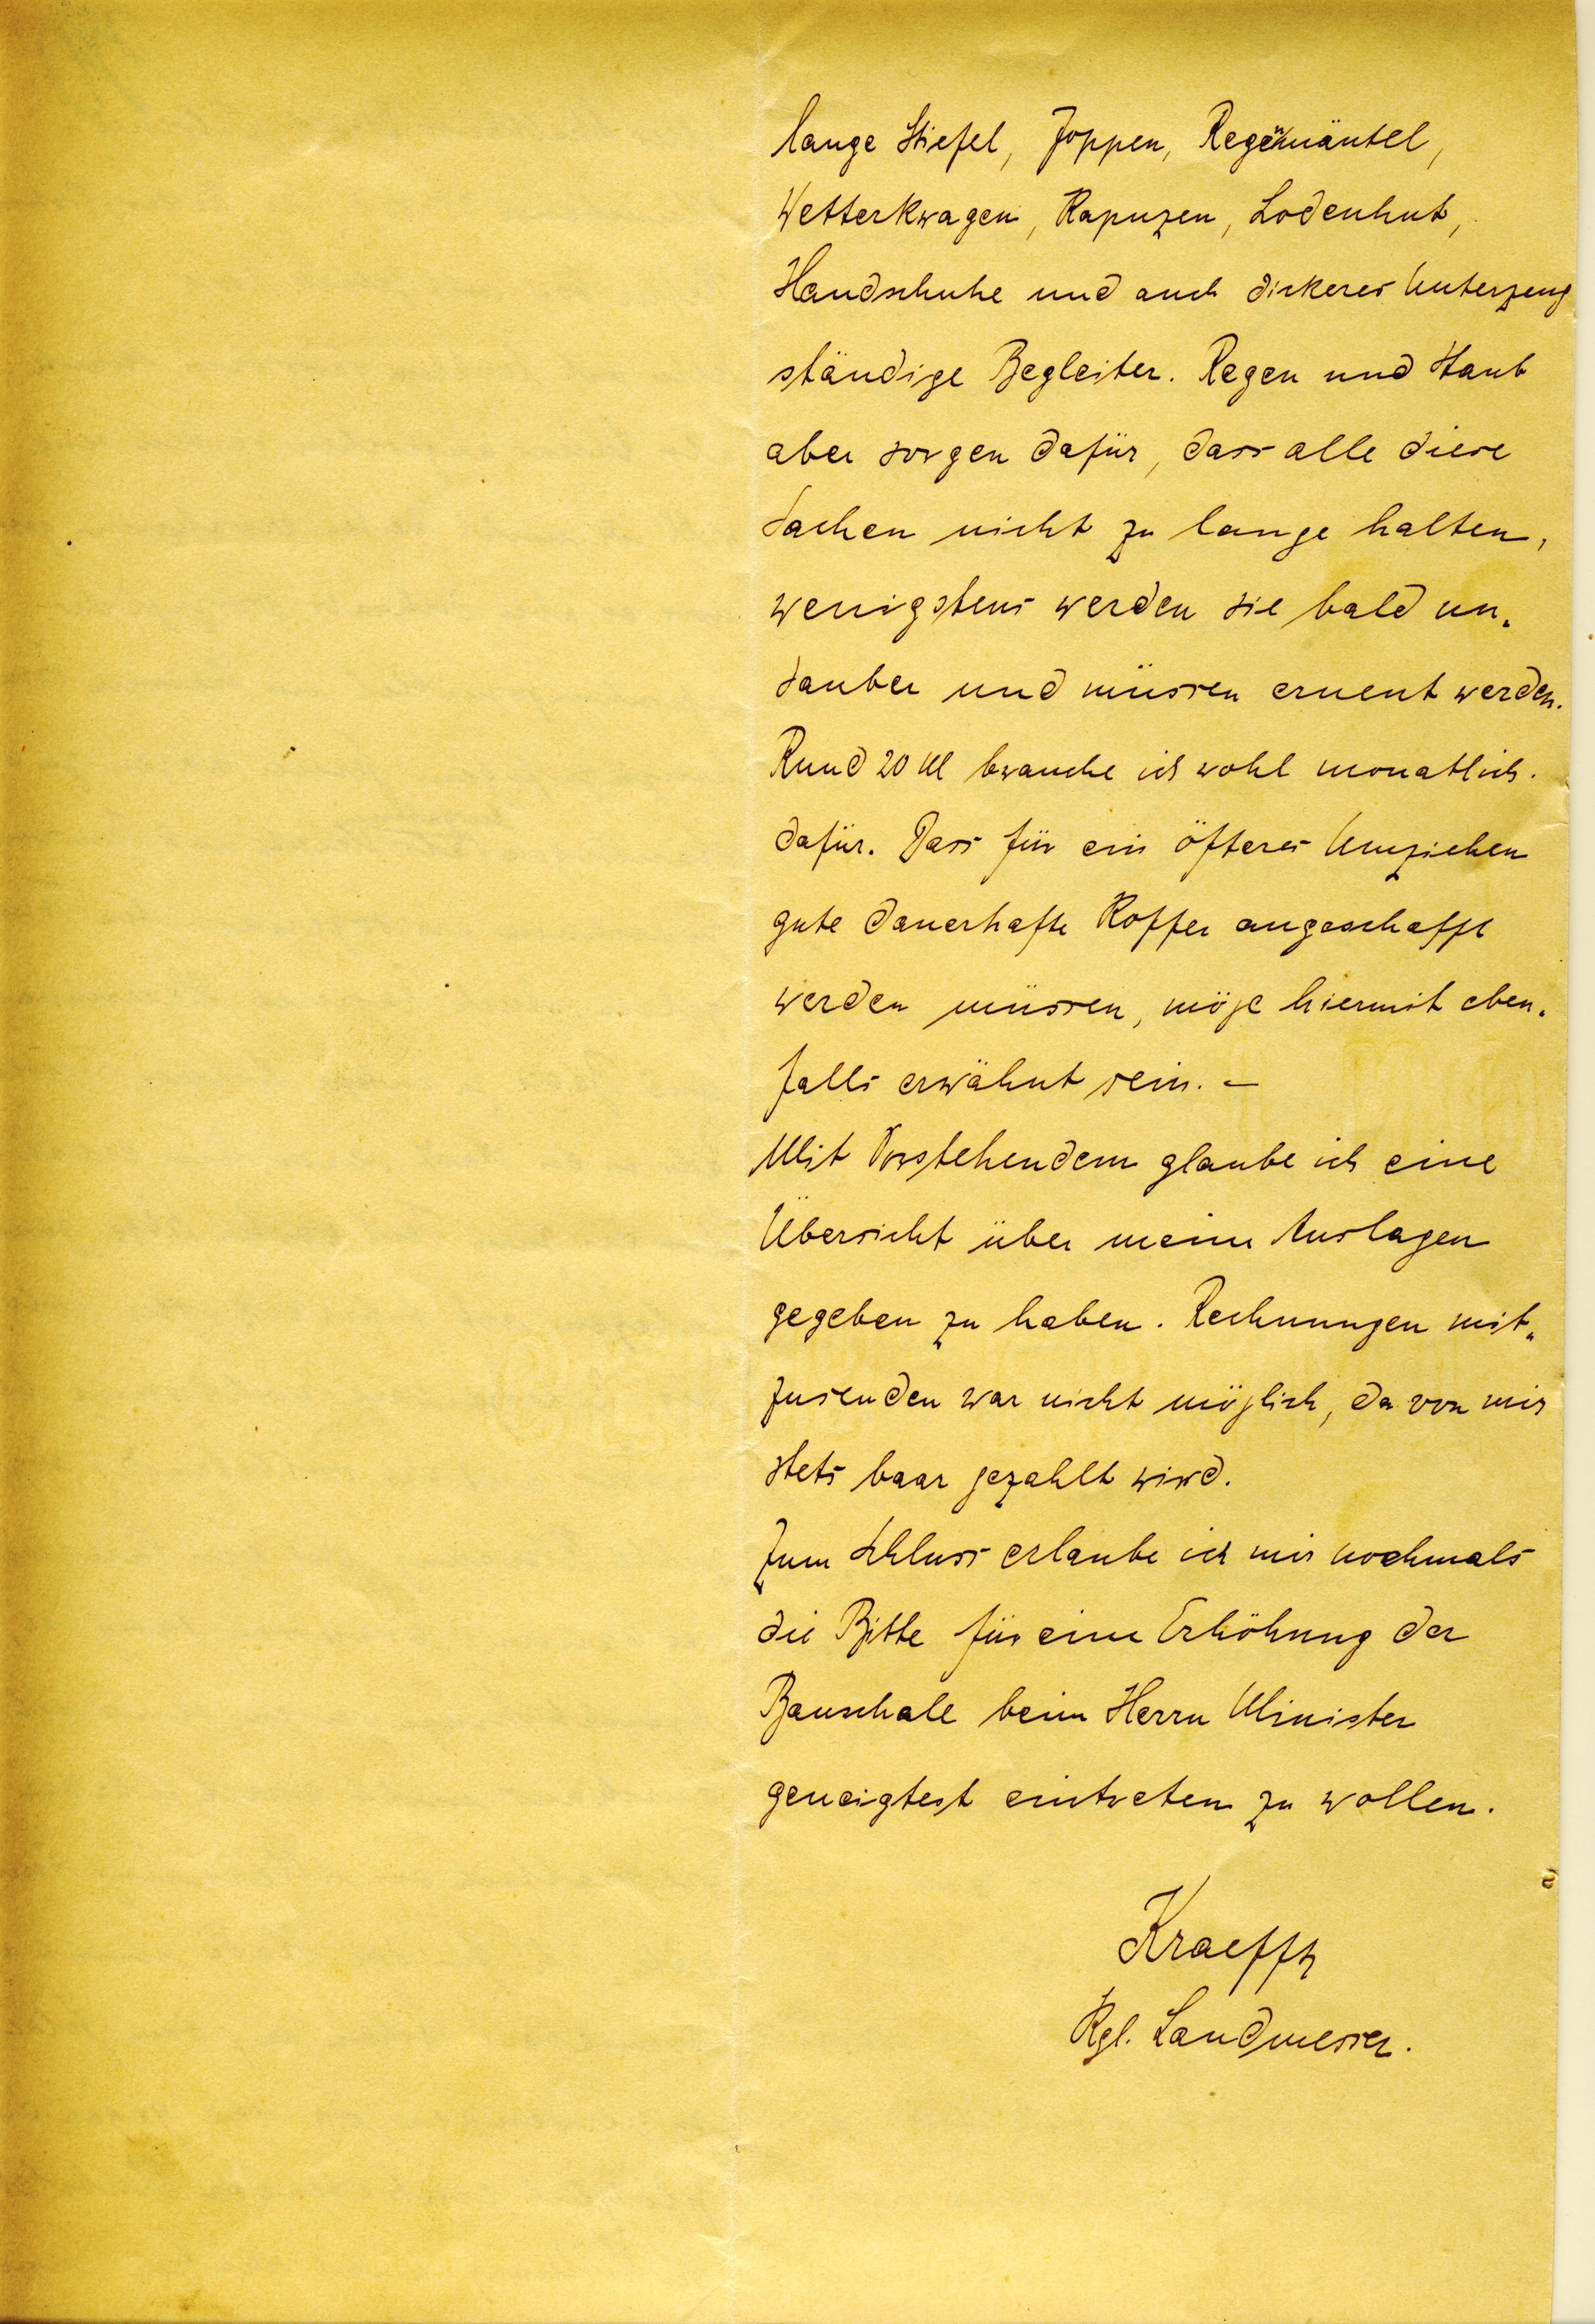 lange Stiefel, Joppen, Regenmäntel,
Wetterkragen, Kapuzen, Lodenhut,
Handschuhe und auch dickeres Unterzeug
ständige Begleiter. Regen und Staub
aber sorgen dafür, dass alle diese
Sachen nicht zu lange halten,
wenigstens werden sie bald un-
sauber und müssen erneut werden.
Rund 20 M brauche ich wohl monatlich.
dafür. Dass für ein öfteres Umziehen
gute dauerhafte Koffer angeschafft
werden müssen, möge hiermit eben-
falls erwähnt sein. –
Mit Vorstehendem glaube ich eine
Übersicht über meine Auslagen
gegeben zu haben. Rechnungen mit-
zusenden war nicht möglich, da von mir
stets baar gezahlt wird.
Zum Schluss erlaube ich mir nochmals
die Bitte für eine Erhöhung der
Bauschale beim Herrn Minister
geneigtest eintreten zu wollen.
Kraefft
Kgl. Landmesser.